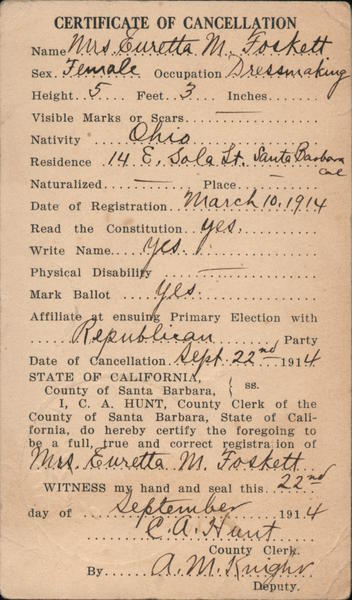 CERTIFICATE OF CANCELLATION
Name Mrs. Euretta M. Foskett
Sex Female Occupation Dressmaking
Height 5 Feet 3 Inches
Visible Marks or Scars —
Nativity Ohio
Residence 14 E. Sola St. Santa Barbara
Cal
Naturalized — Place —
Date of Registration March 10, 1914
Read the Constitution yes.
Write Name yes.
Physical Disability —
Mark Ballot yes.
Affiliate at ensuing Primary Election with
Republican Party
Date of Cancellation Sept. 22nd 1914
STATE OF CALIFORNIA,
County of Santa Barbara, } ss.
I, C. A. HUNT, County Clerk of the
County of Santa Barbara, State of Cali-
fornia, do hereby certify the foregoing to
be a full, true and correct registration of
Mrs. Euretta M. Foskett
WITNESS my hand and seal this 22nd
day of September 1914
C. A. Hunt
County Clerk.
By A. M. Knight
Deputy.